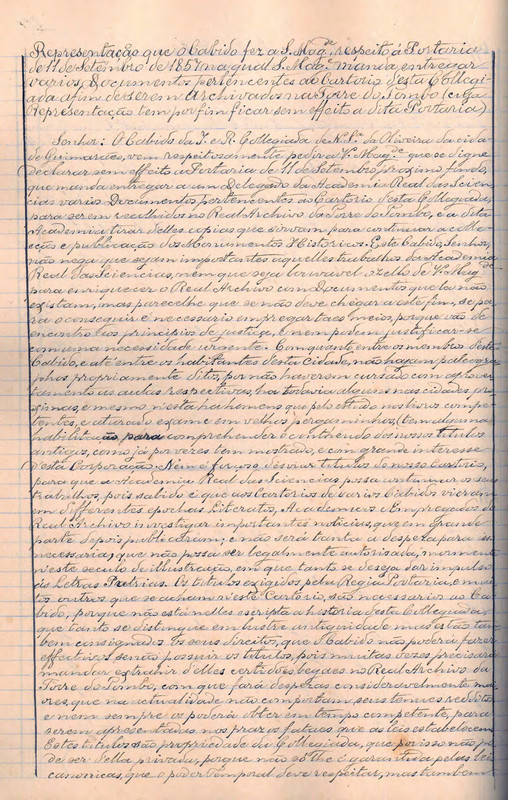 Representação que o Cabido fez a S. Mag.e, respeito á Portaria
de 11 de Setembro de 1857 na qual S. Mag.e manda entregar
varios Documentos pertencentes ao Cartorio desta Collegi-
ada afim de serem Archivados na Torre do Tombo (cuja
Representação tem por fim ficar sem effeito a dita Portaria)
Senhor: O Cabido da I. e R. Collegiada de N. Sr.a da Oliveira da cida-
de Guimarães, vem respeitosamente pedir a V. Mag.e que se digne
declarar sem effeito a Portaria de 11 de Setembro proximo findo,
que manda entregar a um Delegado da Academia Real das Scien-
cias varios Documentos pertencentes ao Cartorio desta Collegiada,
para serem recolhidos no Real Archivo da Torre do Tombo, e a dita
Academia tirar delles copias que sirvam para continuar a colle-
cção e publicação dos Monumentos Historicos. Este Cabido, Senhor,
não nega que sejam importantes aquelles trabalhos da Academia
Real das Sciencias, nem que seja louvavel o zello de V. Mag.e
para enriquecer o Real Archivo com Documentos que lá não
existam, mas parece lhe que se não deve chegar a este fim, se pa-
ra o conseguir é necessario empregar taes meios, porque vão de
encontro aos principios de justiça, e nem podem justificar-se
com uma necessidade urgente. Comquanto entre os membros deste
Cabido, e até entre os habitantes desta cidade, não hajam paleogra-
phos propriamente ditos, por não haverem cursado com aprovei-
tamento as aulas respectivas, ha todavia alguns nas cidades pro-
ximas, e mesmo n'esta ha homens que pelo estudo nos livros compe-
tentes, e aturado exame em velhos pergaminhos, tem alguma
habilitação para comprehender o conthendo dos nossos titulos
antigos, como já por vezes tem mostrado, e com grande interesse
d'esta Corporação. Nem é forçoso desviar titulos do nosso Cartorio,
para que a Academia Real das Sciencias possa continuar os seus
trabalhos, pois sabido é que aos Cartorios de varios Cabidos vieram
em differentes epochas Literatos, Academicos e Empregados do
Real Archivo investigar importantes noticias, que em grande
parte depois publicaram; e não será tanta a despeza para is-
so necessaria, que não possa ser legalmente autorisada, mormente
n'este seculo de illustração, em que tanto se deseja dar impulso
ás Letras Patrias. Os titulos exigidos pela Regia Portaria, e mui-
tos outros que se acham n'este Cartorio, são necessarios ao Ca-
bido, porque não está nelles escripta a historia desta Collegiada,
que tanto se distingue em lustre e antiguidade mas estão tam-
bem consignados os seus direitos, que o Cabido não poderá fazer
effectivos senão possuir os titulos, pois muitas vezes precisará
mandar extrahir d'elles certidões legaes no Real Archivo da
Torre do Tombo, com que fará despezas consideravelmente mai-
ores, que na actualidade não comportam seus tenues reditos,
e nem sempre os poderia obter em tempo competente, para
serem apresentados nos prazos fataes que as leis estabelecem.
Estes titulos são propriedade da Collegiada, que por isso não pó-
de ser della privada, porque não só lhe é garantida pelas leis
canonicas, que o poder Temporal deve respeitar, mas tambem